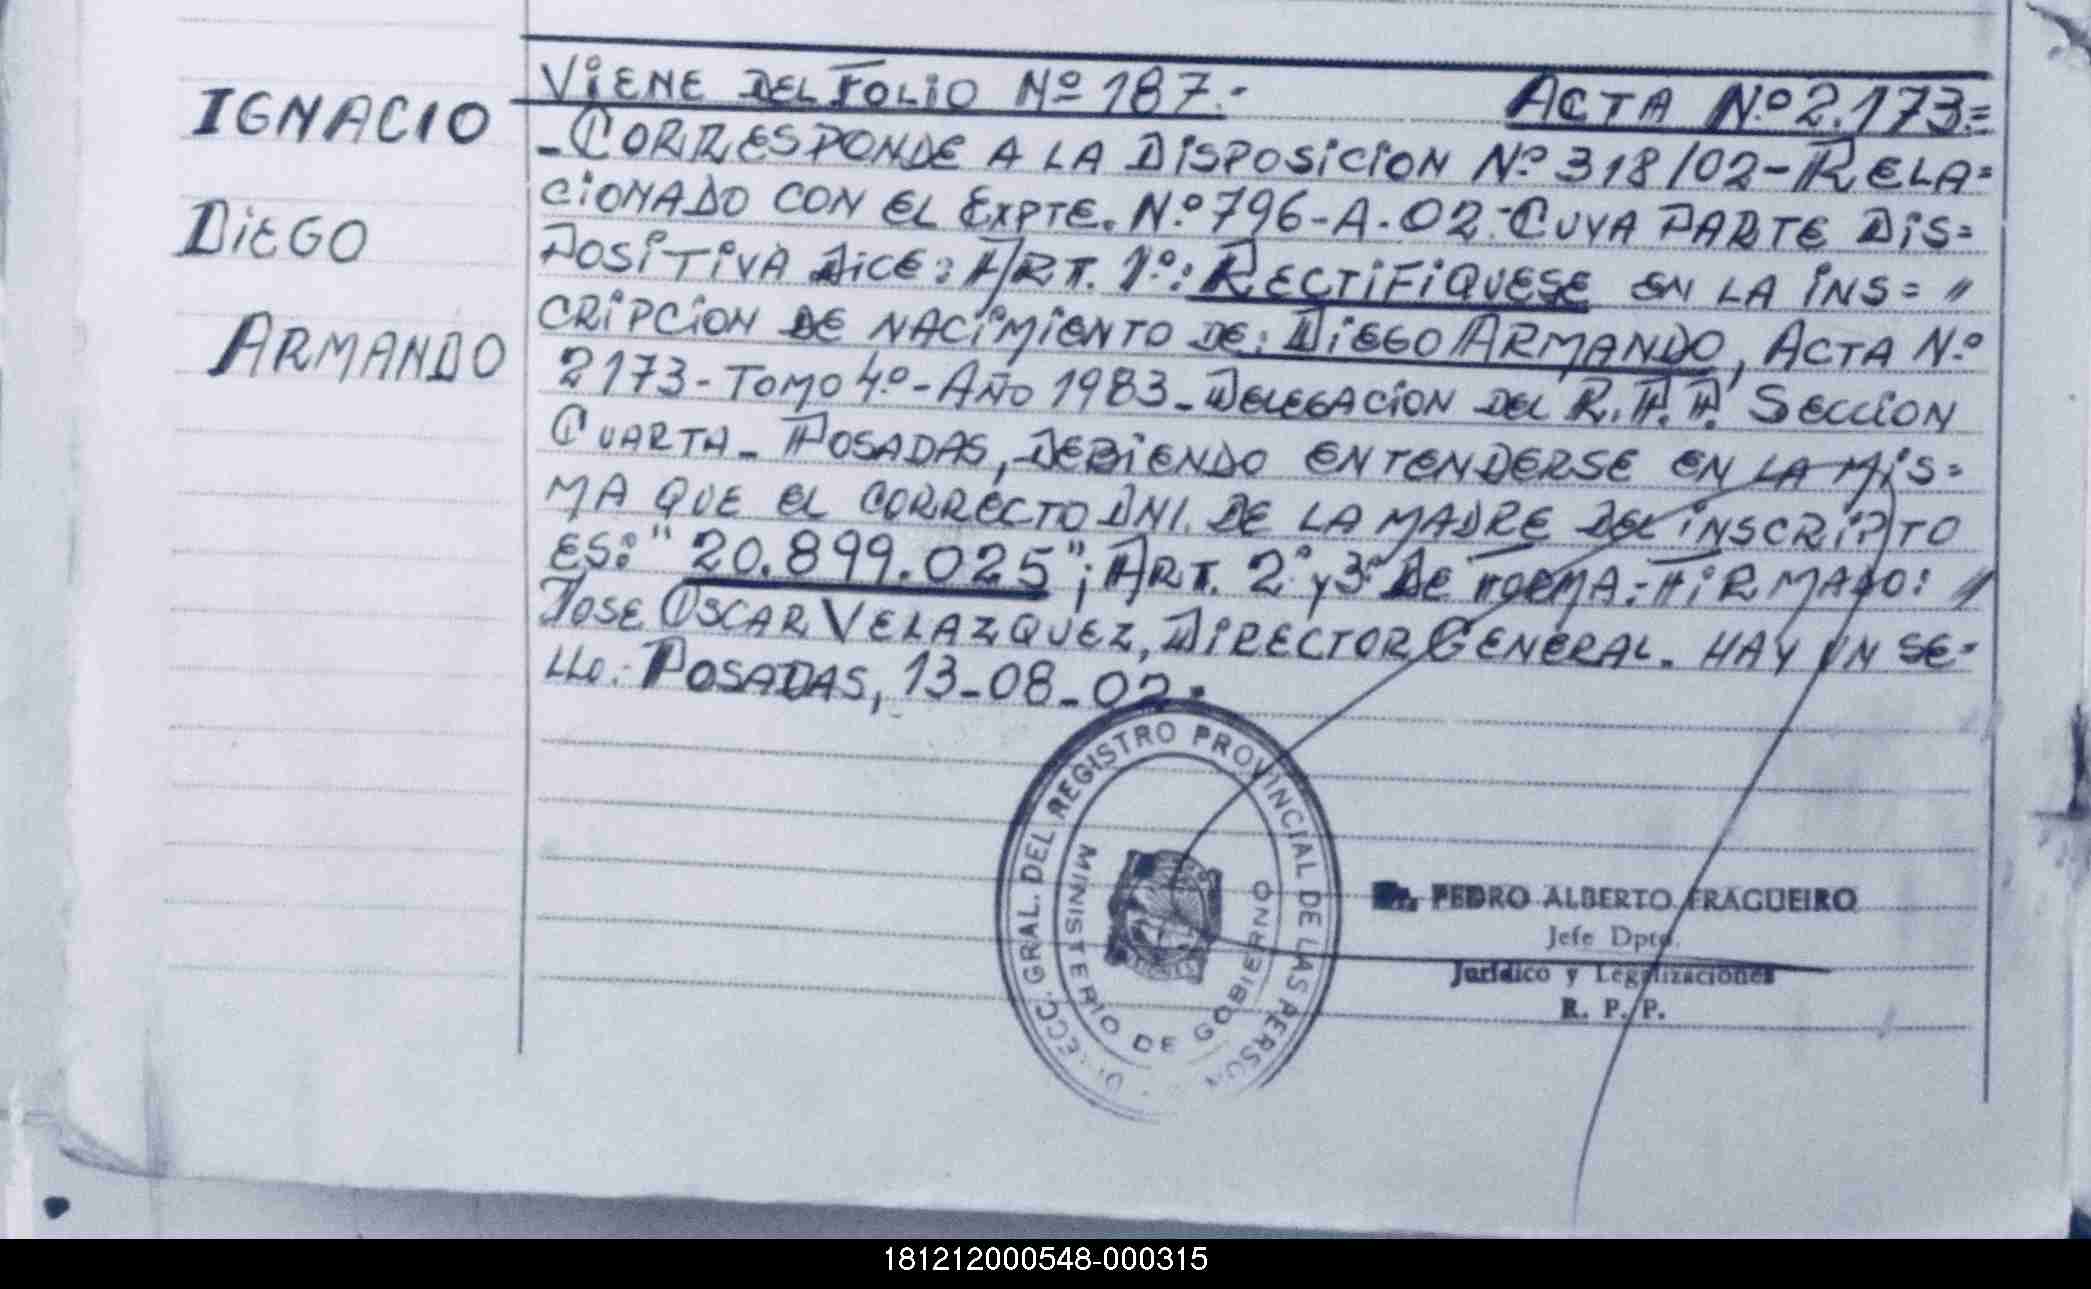 IGNACIO
DIEGO
ARMANDO
VIENE DEL FOLIO Nº 187.-
ACTA N.º 2.173=
-CORRESPONDE A LA DISPOSICION Nº 318/02-RELA=
CIONADO CON EL EXPTE. N.º 796-A.02-CUYA PARTE DIS=
POSITIVA DICE: ART. 1º: RECTIFIQUESE EN LA INS= "
CRIPCION DE NACIMIENTO DE: DIEGO ARMANDO, ACTA N.º
2173-TOMO 4.º-AÑO 1983-DELEGACION DEL R.P.P. SECCION
CUARTA- POSADAS, DEBIENDO ENTENDERSE EN LA MIS=
MA QUE EL CORRECTO DNI. DE LA MADRE DEL INSCRIPTO
ES: "20.899.025"; ART. 2º y 3º DE FORMA.-FIRMADO: "
JOSE OSCAR VELAZQUEZ, DIRECTOR GENERAL. HAY UN SE=
LLO.- POSADAS, 13-08-02.
GRAL. DEL REGISTRO PROVINCIAL DE LAS PERSON
MINISTERIO DE GOBIERNO
Dr. PEDRO ALBERTO FRAGUEIRO
Jefe Dpto.
Jurídico y Legalizaciones
R. P. P.
181212000548-000315